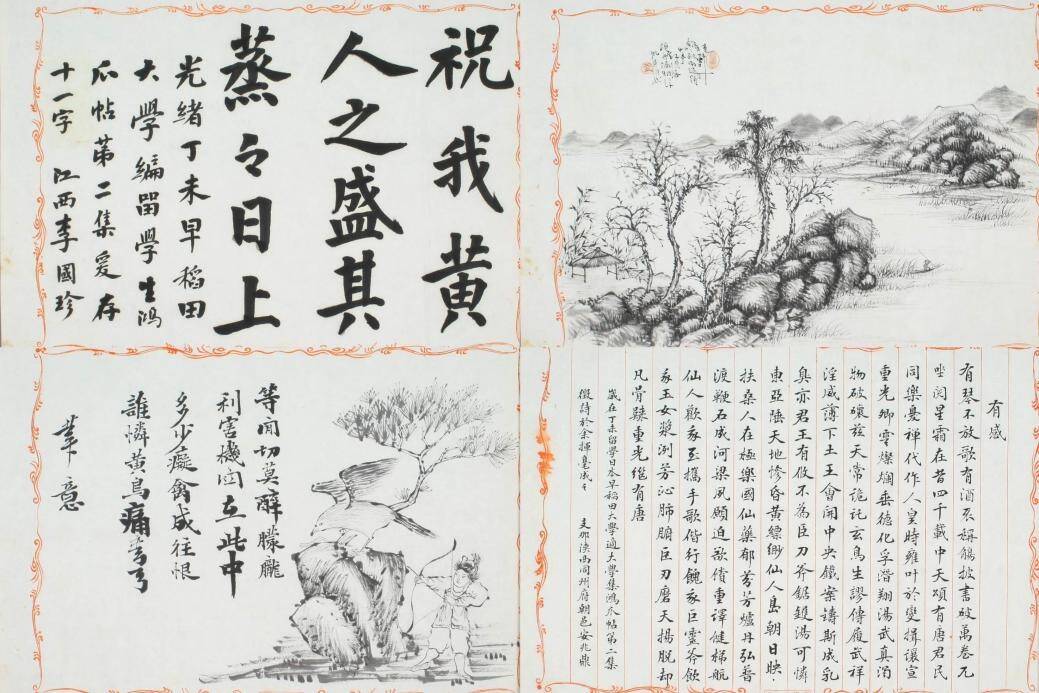 祝我黃
人之盛其
蒸々日上
光緒丁未早稻田
大學編留學生鴻
爪帖第二集爰存
十一字 江西李國珍
等閒切莫醉朦朧
利害機關在此中
多少癡禽成往恨
誰憐黃鳥痛彎弓
有感
有琴不放歌有酒不觴披書破萬卷兀
坐閱星霜在昔四千載中天頌有唐君民
同樂憂禪代作人皇時雍叶於變揖讓宣
重光卿雲燦爛垂德化孚潛翔湯武真滑
物破壞茲天常詭託玄鳥生謬傳履武祥
淫威薄下土王會開中央鐵案鑄斯成乳
臭亦君王有攸不為臣刀斧鋸鑊湯可憐
東亞陸天地慘昏黃縹緲仙人島朝日映
扶桑人在極樂國仙藥郁芬芳爐丹弘普
渡鞭石成河梁夙願迫欲償重譯健梯航
仙人歡至攜手歌偕行餽巨靈斧飲
玉女漿洌芳沁肺腑巨刃磨天揚脫却
凡骨疎重光继有唐
歲在丁未留學日本早稻田大學適大學集鴻爪帖第二集
徵詩於余揮毫成之 支那陝西同州府朝邑安兆鼎